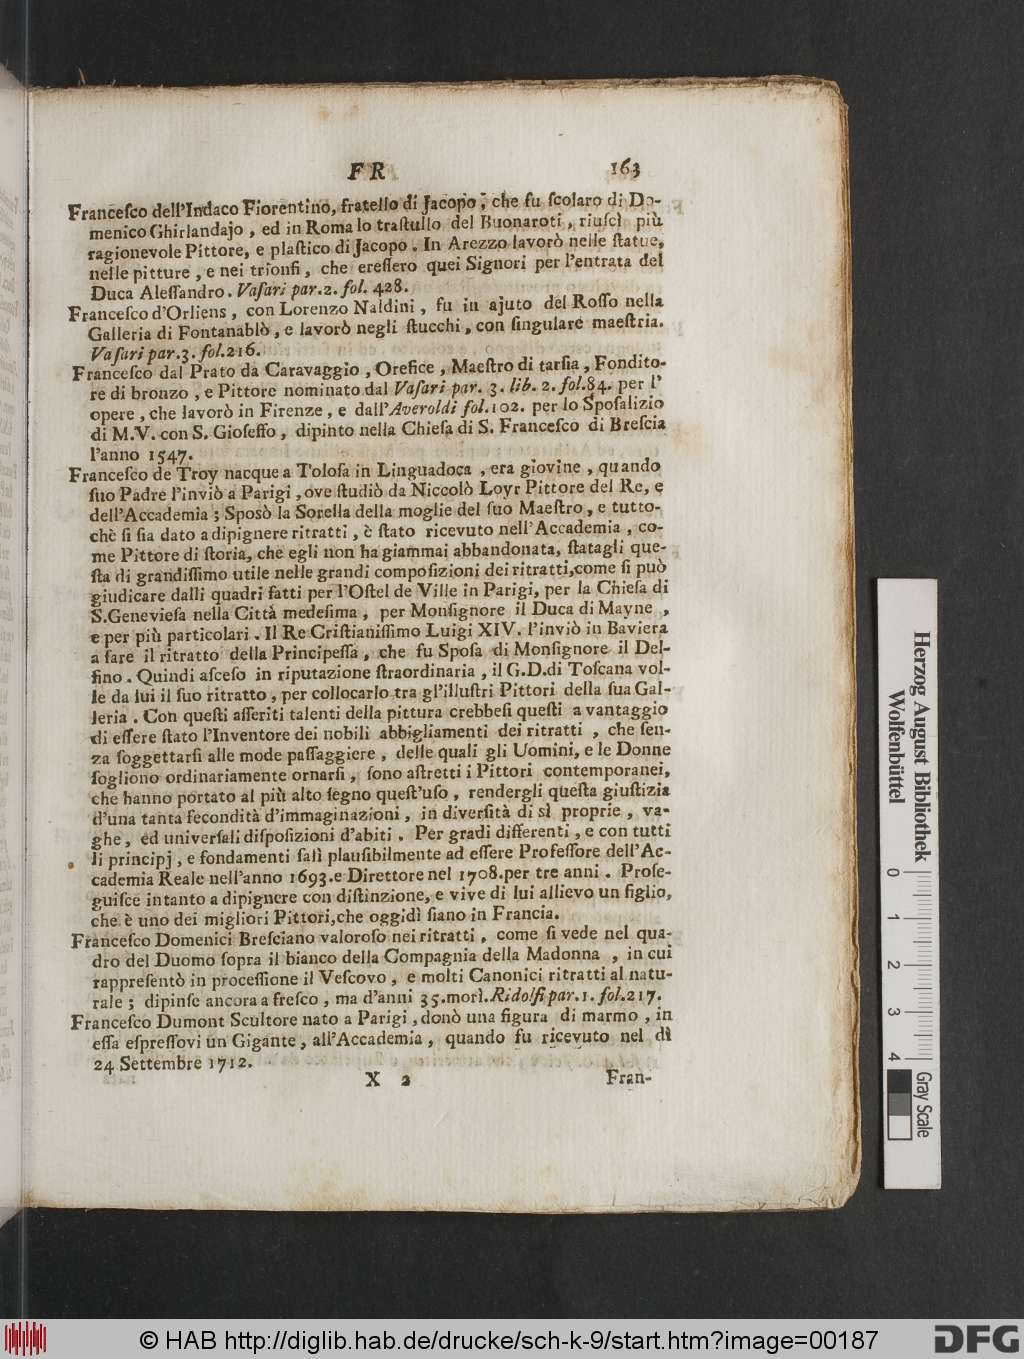 FR 163
Franceſco dell'Indaco Fiorentino, fratello di Jacopo, che fu ſcolaro di Do-
menico Ghirlandajo, ed in Roma lo traſtullo del Buonaroti, riuſcì più
ragionevole Pittore, e plaſtico di Jacopo. In Arezzo lavorò nelle ſtatue,
nelle pitture, e nei trionfi, che ereſſero quei Signori per l'entrata del
Duca Aleſſandro. Vaſari par.2. fol. 428.
Franceſco d'Orliens, con Lorenzo Naldini, fu in ajuto del Roſſo nella
Galleria di Fontanablò, e lavorò negli ſtucchi, con ſingulare maeſtria.
Vaſari par.3. fol.216.
Franceſco dal Prato da Caravaggio, Orefice, Maeſtro di tarſia, Fondito-
re di bronzo, e Pittore nominato dal Vaſari par. 3. lib. 2. fol.84. per l'
opere, che lavorò in Firenze, e dall'Averoldi fol.102. per lo Spoſalizio
di M.V. con S. Gioſeffo, dipinto nella Chieſa di S. Franceſco di Breſcia
l'anno 1547.
Franceſco de Troy nacque a Toloſa in Linguadoca, era giovine, quando
ſuo Padre l'inviò a Parigi, ove ſtudiò da Niccolò Loyr Pittore del Re, e
dell'Accademia; Sposò la Sorella della moglie del ſuo Maeſtro, e tutto-
chè ſi ſia dato a dipignere ritratti, è ſtato ricevuto nell'Accademia, co-
me Pittore di ſtoria, che egli non ha giammai abbandonata, ſtatagli que-
ſta di grandiſſimo utile nelle grandi compoſizioni dei ritratti, come ſi può
giudicare dalli quadri fatti per l'Oſtel de Ville in Parigi, per la Chieſa di
S.Genevieſa nella Città medeſima, per Monſignore il Duca di Mayne,
e per più particolari. Il Re Criſtianiſſimo Luigi XIV. l'inviò in Baviera
a fare il ritratto della Principeſſa, che fu Spoſa di Monſignore il Del-
fino. Quindi aſceſo in riputazione ſtraordinaria, il G.D.di Toſcana vol-
le da lui il ſuo ritratto, per collocarlo tra gl'illuſtri Pittori della ſua Gal-
leria. Con queſti aſſeriti talenti della pittura crebbeſi queſti a vantaggio
di eſſere ſtato l'Inventore dei nobili abbigliamenti dei ritratti, che ſen-
za ſoggettarſi alle mode paſſaggiere, delle quali gli Uomini, e le Donne
ſogliono ordinariamente ornarſi, ſono aſtretti i Pittori contemporanei,
che hanno portato al più alto ſegno queſt'uſo, rendergli queſta giuſtizia
d'una tanta fecondità d'immaginazioni, in diverſità di sì proprie, va-
ghe, ed univerſali diſpoſizioni d'abiti. Per gradi differenti, e con tutti
li principj, e fondamenti ſalì plauſibilmente ad eſſere Profeſſore dell'Ac-
cademia Reale nell'anno 1693.e Direttore nel 1708.per tre anni. Proſe-
guiſce intanto a dipignere con diſtinzione, e vive di lui allievo un figlio,
che è uno dei migliori Pittori, che oggidì ſiano in Francia.
Franceſco Domenici Breſciano valoroſo nei ritratti, come ſi vede nel qua-
dro del Duomo ſopra il bianco della Compagnia della Madonna, in cui
rappreſentò in proceſſione il Veſcovo, e molti Canonici ritratti al natu-
rale; dipinſe ancora a freſco, ma d'anni 35.morì.Ridolfi par.1. fol.217.
Franceſco Dumont Scultore nato a Parigi, donò una figura di marmo, in
eſſa eſpreſſovi un Gigante, all'Accademia, quando fu ricevuto nel dì
24 Settembre 1712.
X 2 Fran-
Herzog August Bibliothek
Wolfenbüttel
0 1 2 3 4
Gray Scale
© HAB http://diglib.hab.de/drucke/sch-k-9/start.htm?image=00187
DFG